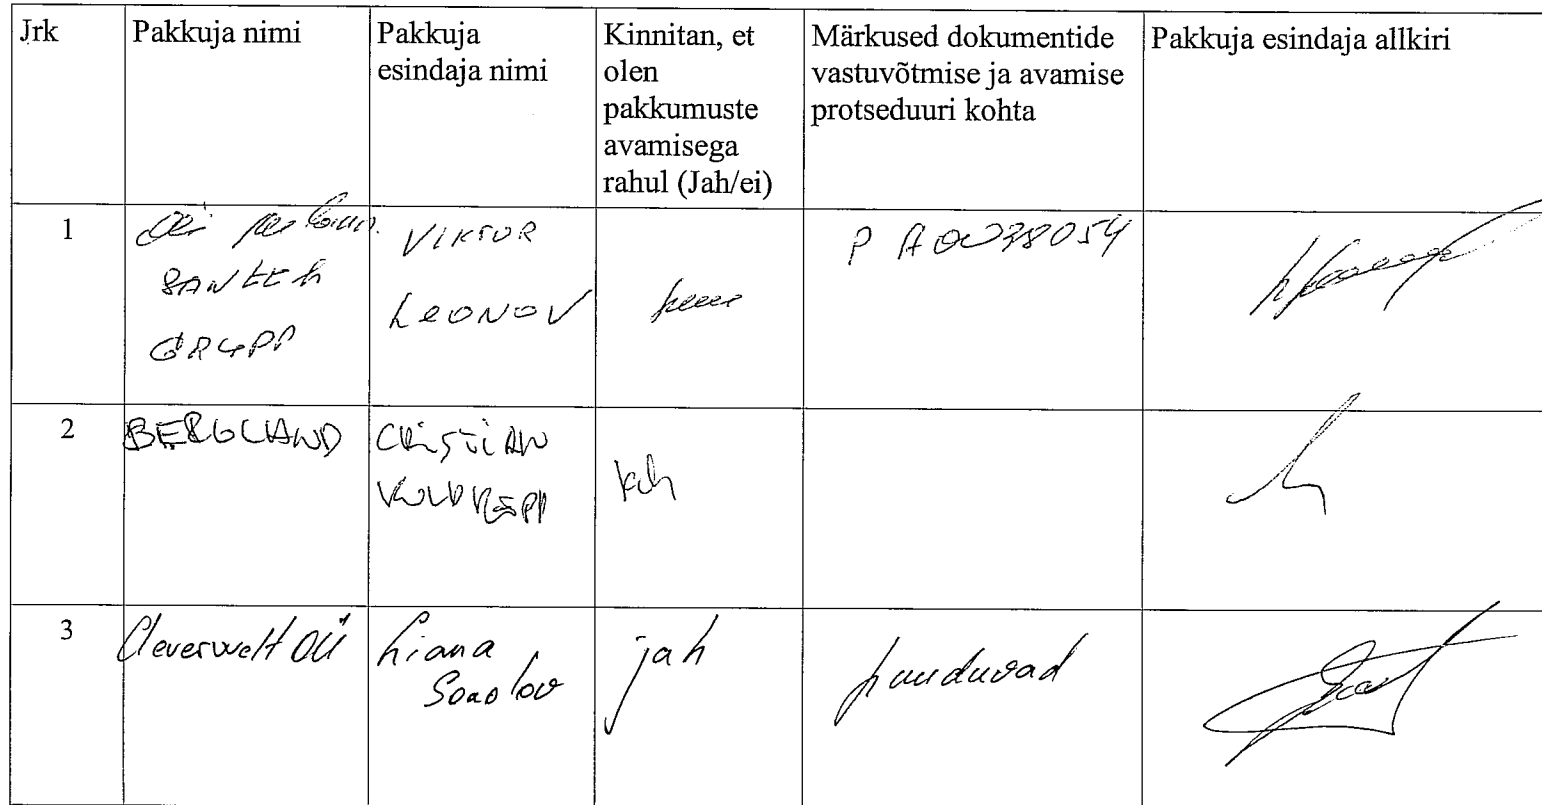 Jrk
Pakkuja nimi
Pakkuja
esindaja nimi
Kinnitan, et
olen
pakkumuste
avamisega
rahul (Jah/ei)
Märkused dokumentide
vastuvõtmise ja avamise
protseduuri kohta
Pakkuja esindaja allkiri
1
SANTEH
GRUPP
VIKTOR
LEONOV
2
BERGLAND
CRISTIAN
3
Cleverwelt OÜ
Liana
jah
puuduvad